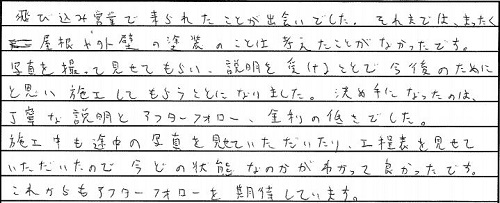 飛び込み営業で来られたことが出会いでした。それまでは、まったく
屋根や外壁の塗装のことは考えたことがなかったです。
写真を撮って見せてもらい、説明を受けることで今後のために
と思い施工してもらうことになりました。決め手になったのは、
丁寧な説明とアフターフォロー、金利の低さでした。
施工中も途中の写真を見せていただいたり、工程表を見せて
いただいたので今どの状態なのかがわかって良かったです。
これからもアフターフォローを期待しています。